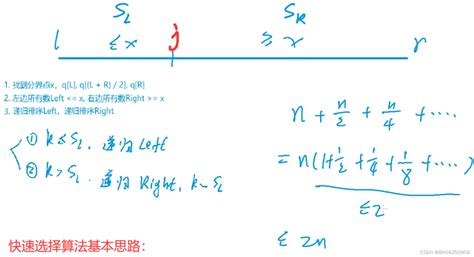 S_L S_R
l ≤x j ≥x r
1. 找到分界点x, q[L], q[(L + R) / 2], q[R]
2. 左边所有数Left <= x, 右边所有数Right >= x
3. 递归排序Left, 递归排序Right
① k≤S_L, 递归 Left
② k>S_L, 递归 Right, k-S_L
n + n/2 + n/4 + ....
= n(1+1/2+1/4+1/8+....)
≤2
≤ 2n
快速选择算法基本思路: